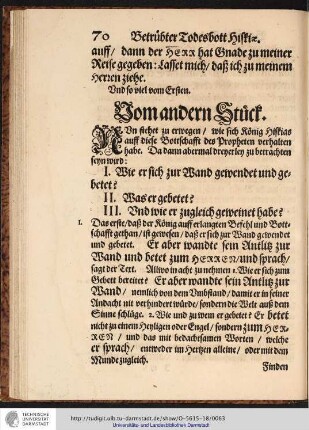 70 Betrübter Todesbott Hiskiæ.
auff/ dann der HERR hat Gnade zu meiner
Reise gegeben: Lasset mich/ daß ich zu meinem
Herren ziehe.
Vnd so viel vom Ersten.
Vom andern Stück.
NVn stehet zu erwegen/ wie sich König Hiskias
auff diese Bottschafft des Propheten verhalten
habe. Da dann abermal dreyerley zu betrachten
seyn wird:
I. Wie er sich zur Wand gewendet vnd ge-
betet?
II. Was er gebetet?
III. Vnd wie er zugleich geweinet habe?
1. Das erste/ daß der König auff erlangten Befehl vnd Bott-
schafft gethan/ ist gewesen/ daß er sich zur Wand gewendet
vnd gebetet. Er aber wandte sein Antlitz zur
Wand vnd betet zum HERREN/ vnd sprach/
sagt der Text. Allwo in acht zu nehmen 1. Wie er sich zum
Gebett bereitet: Er aber wandte sein Antlitz zur
Wand/ nemlich von dem Vmbstand/ damit er in seiner
Andacht nit verhindert würde/ sondern die Welt auß dem
Sinne schläge. 2. Wie vnd zu wem er gebetet? Er betet
nicht zu einem Heyligen oder Engel/ sondern zum HER-
REN/ vnd das mit bedachtsamen Worten/ welche
er sprach/ entweder im Hertzen alleine/ oder mit dem
Munde zugleich.
Finden
TECHNISCHE
UNIVERSITÄT
DARMSTADT
http://tudigit.ulb.tu-darmstadt.de/show/O-5615-18/0063
Universitäts- und Landesbibliothek Darmstadt